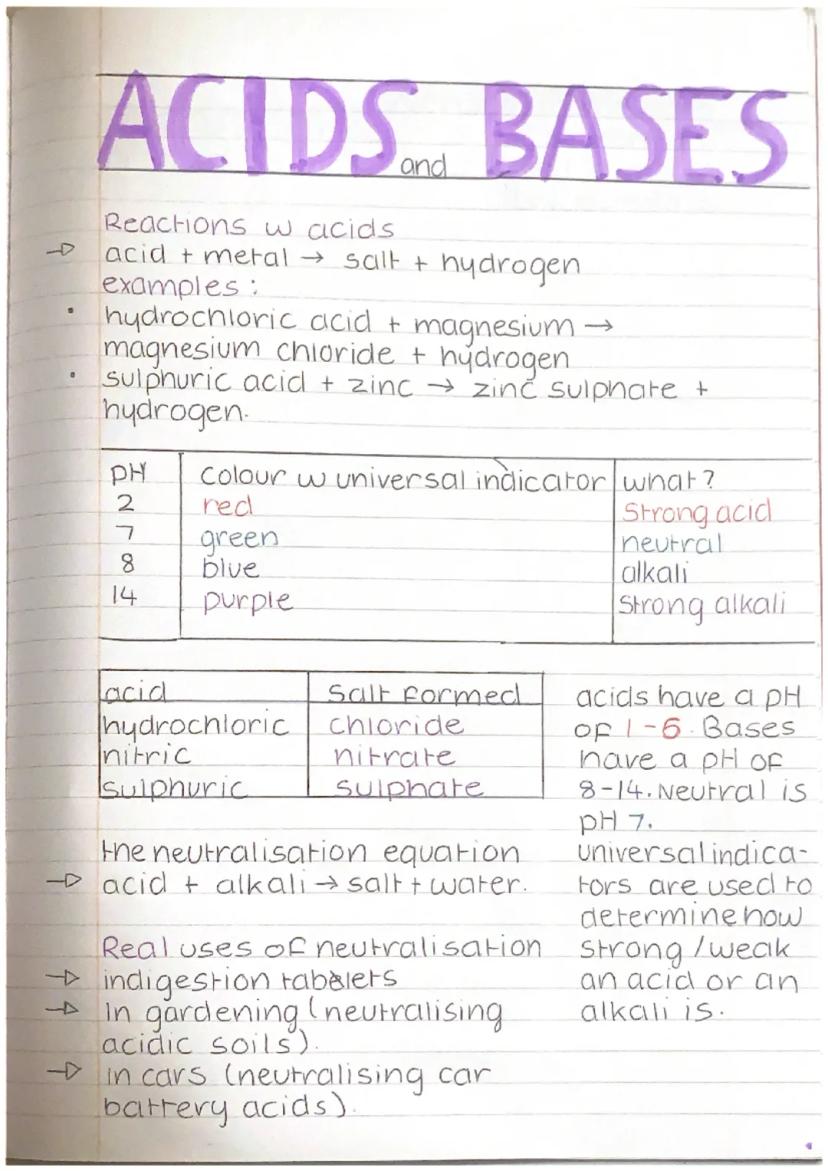 ACIDS and BASES
Reactions w acids
→ acid + metal → salt + hydrogen
examples:
• hydrochloric acid + magnesium →
magnesium chloride + hydrogen
• sulphuric acid + zinc → zinc sulphate +
hydrogen.
pH colour w universal indicator what?
2 red strong acid
7 green neutral
8 blue alkali
14 purple strong alkali
acid salt formed
hydrochloric chloride
nitric nitrate
sulphuric sulphate
acids have a pH
of 1-6. Bases
have a pH of
8-14. Neutral is
pH 7.
universal indica-
tors are used to
determine how
strong/weak
an acid or an
alkali is.
the neutralisation equation
→ acid + alkali → salt + water.
Real uses of neutralisation
→ indigestion tablets
→ in gardening (neutralising
acidic soils).
→ in cars (neutralising car
battery acids).